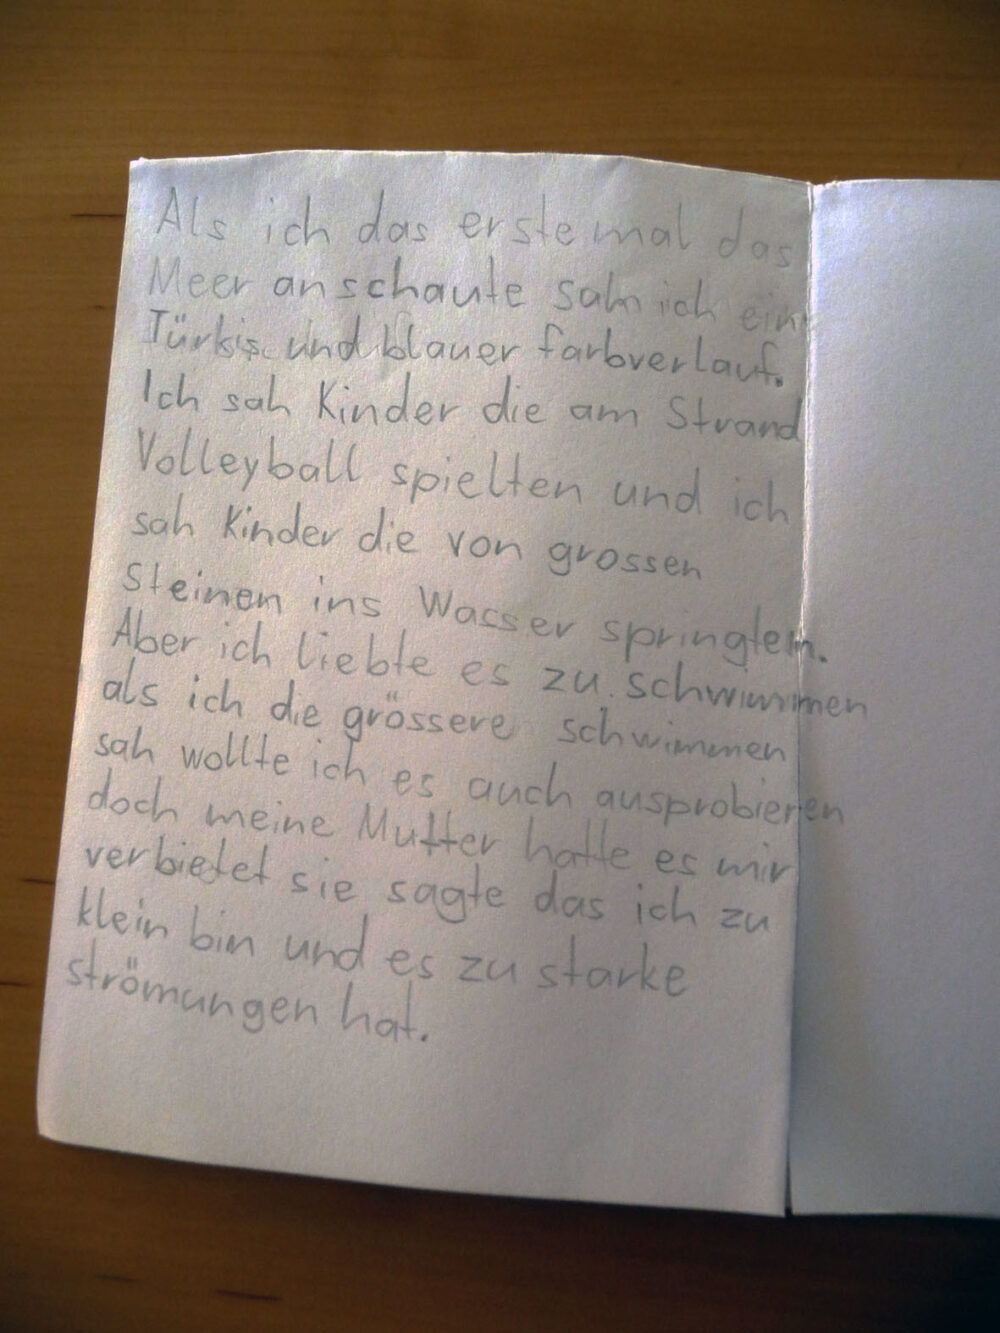 Als ich das erste mal das
Meer anschaute sah ich ein
Türkis und blauer farbverlauf.
Ich sah Kinder die am Strand
Volleyball spielten und ich
sah Kinder die von grossen
Steinen ins Wasser springten.
Aber ich liebte es zu schwimmen
als ich die grössere schwimmen
sah wollte ich es auch ausprobieren
doch meine Mutter hatte es mir
verbietet sie sagte das ich zu
klein bin und es zu starke
strömungen hat.